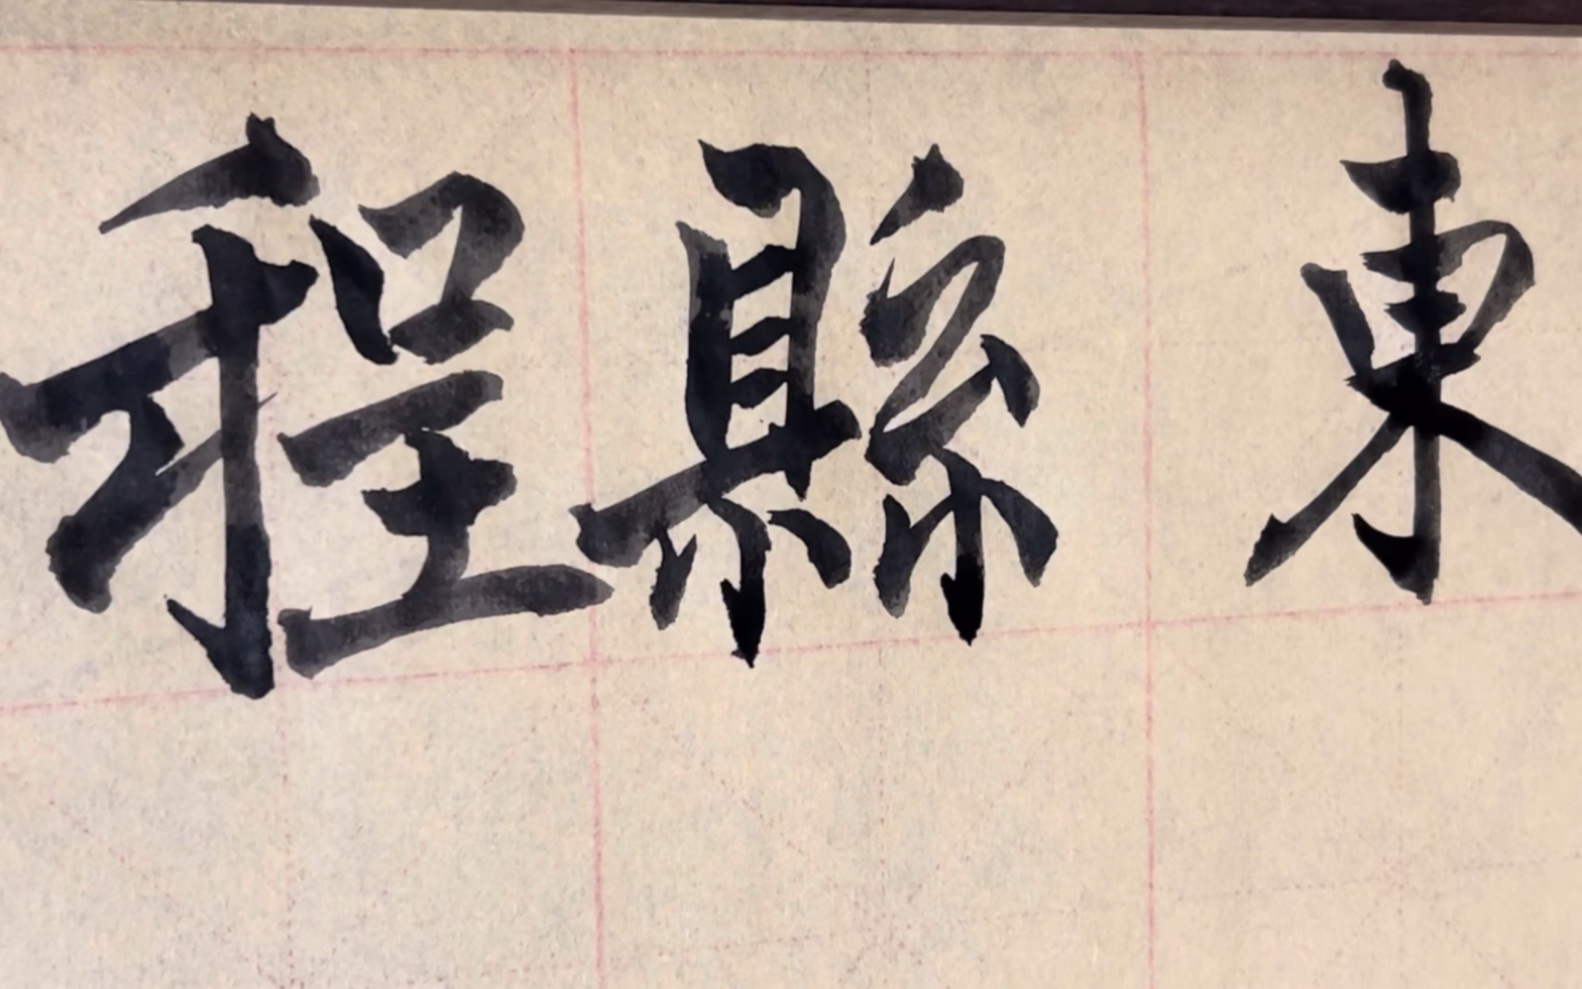 程縣東